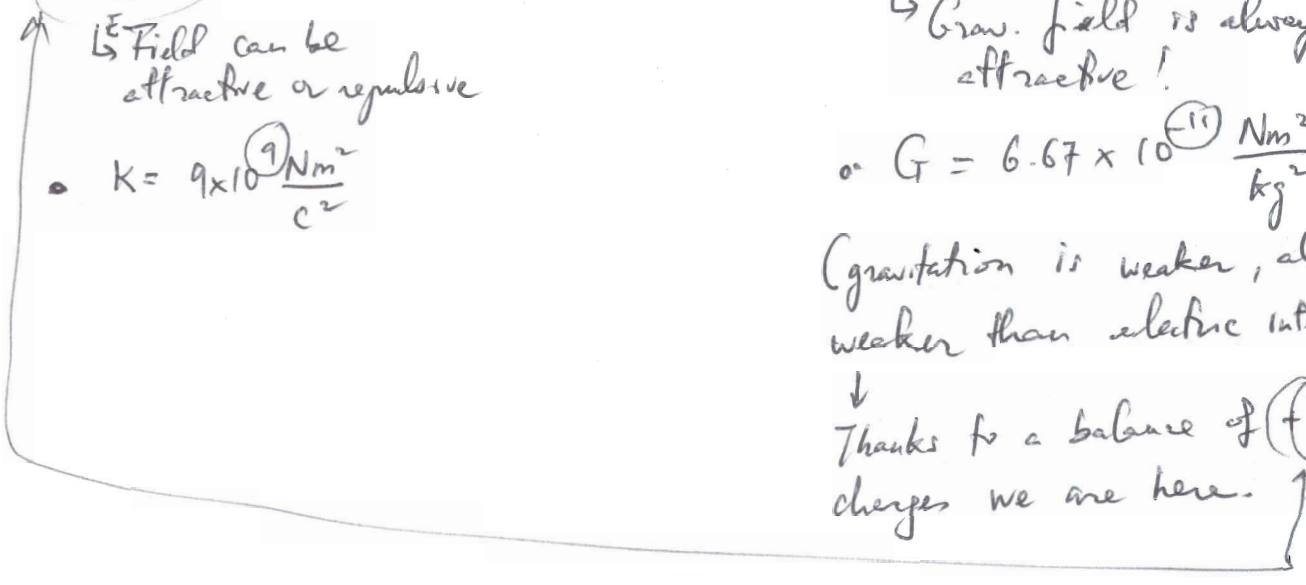 ↳ E Field can be
attractive or repulsive
• K = 9x10^9 Nm²/C²
↳ Grav. field is alway
attractive!
• G = 6.67 x 10^-11 Nm²/kg²
(gravitation is weaker, al
weaker than electric int
↓
Thanks to a balance of (+
charges we are here.